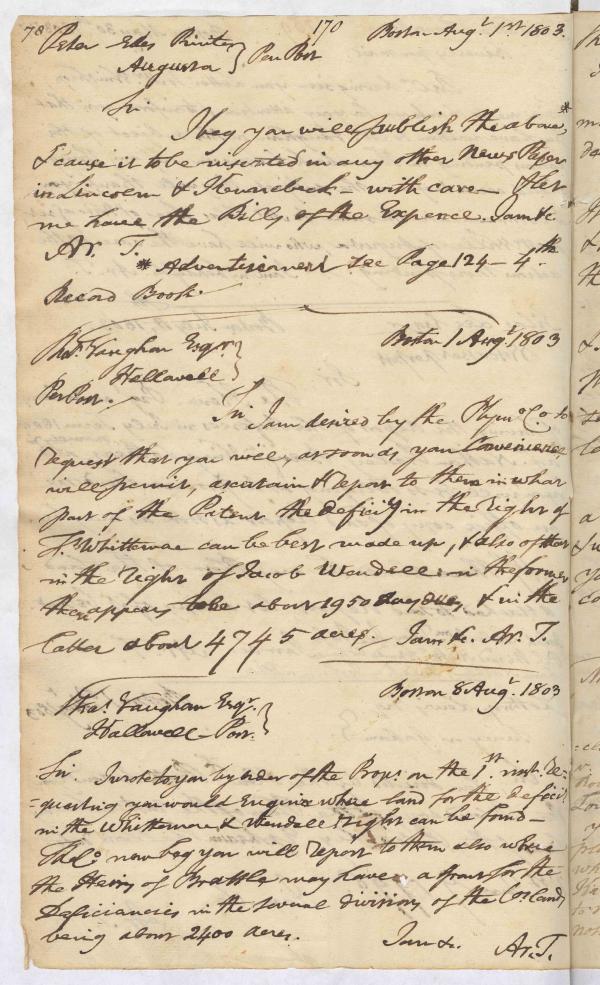 78 170 Boston Augt. 1st 1803.
Peter Edes Printer } Per Post
Augusta
Sir
I beg you will publish the above*
& cause it to be inserted in any other News Paper
in Lincoln & Kennebeck - with care - & let
me have the Bills of the Expence. I am &c
Ar. T.
* Advertisement see Page 124 - 4th
Record Book.
Boston 1 Augt. 1803
Thos. Vaughan Esqr. }
Hallowell
Per Post.
Sir I am desired by the Plymo. Co. to
request that you will, as soon as your Convenience
will permit, ascertain & report to them in what
part of the Patent the deficiy in the right of
Whittemore can be best made up, & also of that
in the right of Jacob Wendell: in the former
there appears to be about 1950 & in the
latter about 4745 acres. I am &c. Ar. T.
Boston 8 Augt. 1803
Thos. Vaughan Esqr. }
Hallowell - Post.
Sir. I wrote to you by order of the Props. on the 1st inst. re-
=questing you would Enquire where land for the deficiy
in the Whittemore & Wendell right can be found -
The Co. now beg you will report to them also where
the Heirs of Brattle may have a for the
Deficiencies in the several divisions of the Cos. lands
being about 2400 acres. I am &c. Ar. T.